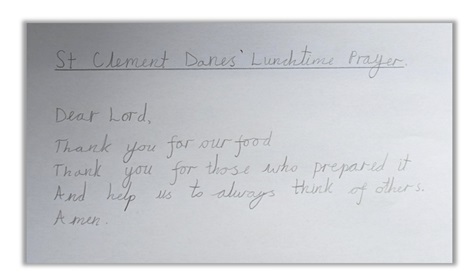 St Clement Danes' Lunchtime Prayer.
Dear Lord,
Thank you for our food
Thank you for those who prepared it
And help us to always think of others.
Amen.